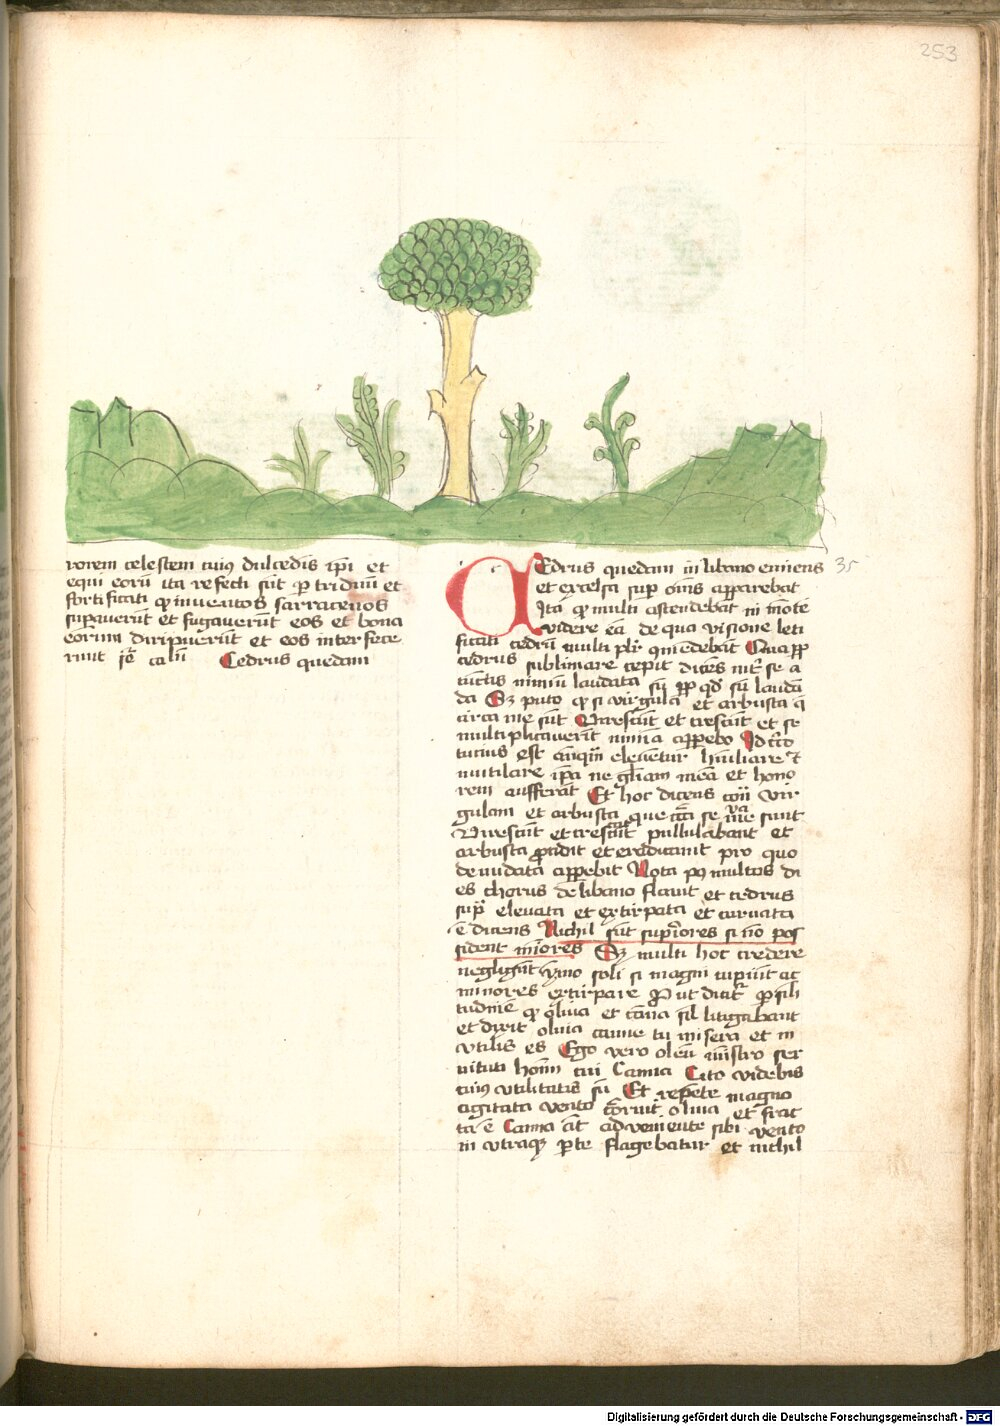 253
rorem celestem cuiꝰ dulcedīs ip̄i et
equi eorū ita refecti sūt ꝙ triduū et
fortificati ꝙ inuentos sarracenos
supauerūt et fugauerūt eos et bona
eorum diripuerūt et eos interfece
runt
Cedrus quedam
CEdrus quedam in libano eminens
35
et excelsa sup om̄s apparebat
Ita ꝙ multi ascendebāt in mōtē
videre eā de qua visione leti
ficati cedrū multi
cedrus sublimare cepit dicēs se a
cūctis nimiū laudata sū
da puto ꝙ si virgula et arbusta q̄
circa me sūt Crescūt et crescūt et se
multiplicauerīt nimia apparebo
tucius est eleuētur humiliare et
mutilare ip̄a ne gloriam meā et hono
rem aufferāt Et hoc dicens om̄i vir
gulam et arbusta que sunt
Virescūt et crescūt pullulabant et
arbusta et eradicauit pro quo
denudata apparebit Nota multos di
es chorus de libano flauit et cedrus
sup̄ eleuata et extirpata et curuata
ē dicens Nichil sūt sup̄iores si nō pos
sident mīores multi hoc credere
negligūt ymo soli si magni cupiūt ac
minores extirpare Vt dicit̄ ꝑ sili
tudinē ꝙ oliua et cāna sil litigabant
et dixit oliua canne tu misera et in
vtilis es Ego vero oleū ministro ser
uituti hoīm cui Canna Cito videbis
cuiꝰ vtilitatis sū Et repēte magno
agitata vento corruit oliua et frac
ta ē Canna āt adueniente sibi vento
in vtraqꝫ ꝑte flagebatur et nichil
Digitalisierung gefördert durch die Deutsche Forschungsgemeinschaft - DFG